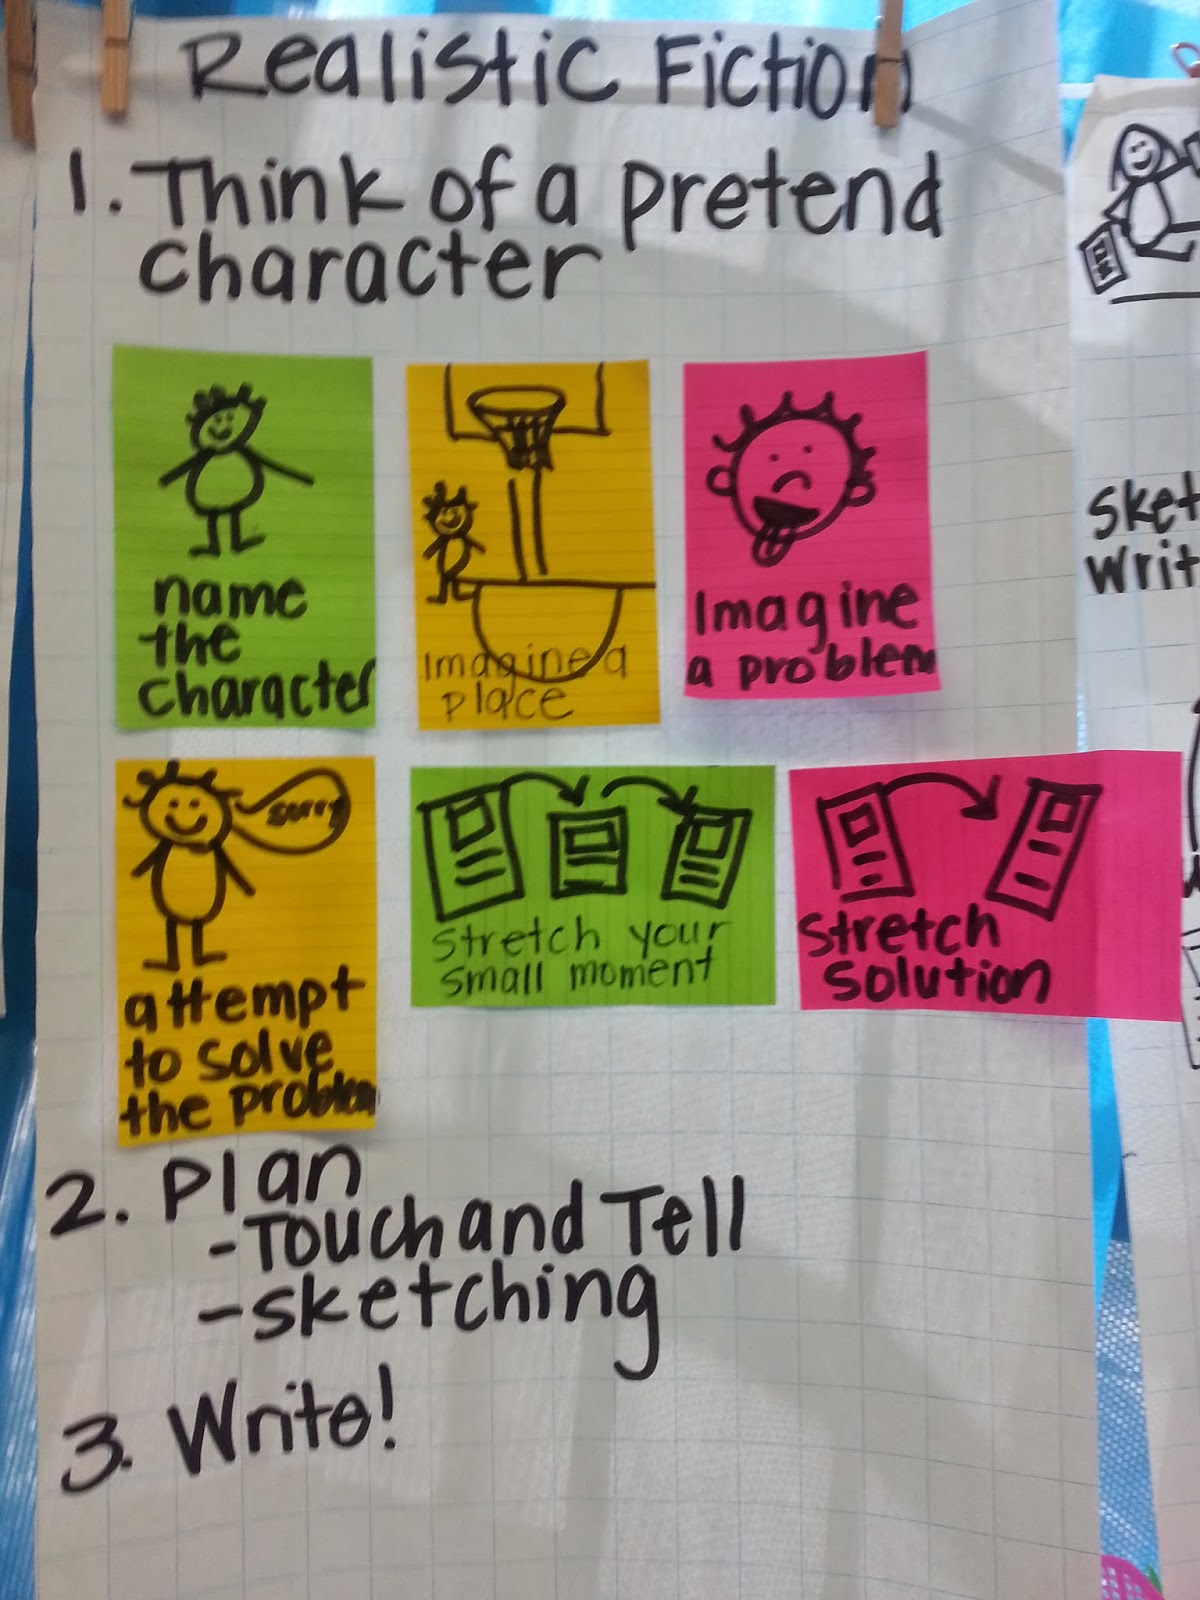 Realistic Fiction
1. Think of a pretend
character
name
the
character
Imagine a
place
Imagine
a problem
sorry
attempt
to solve
the problem
stretch your
small moment
stretch
solution
2. Plan
-Touch and Tell
-sketching
3. Write!
sket
writ